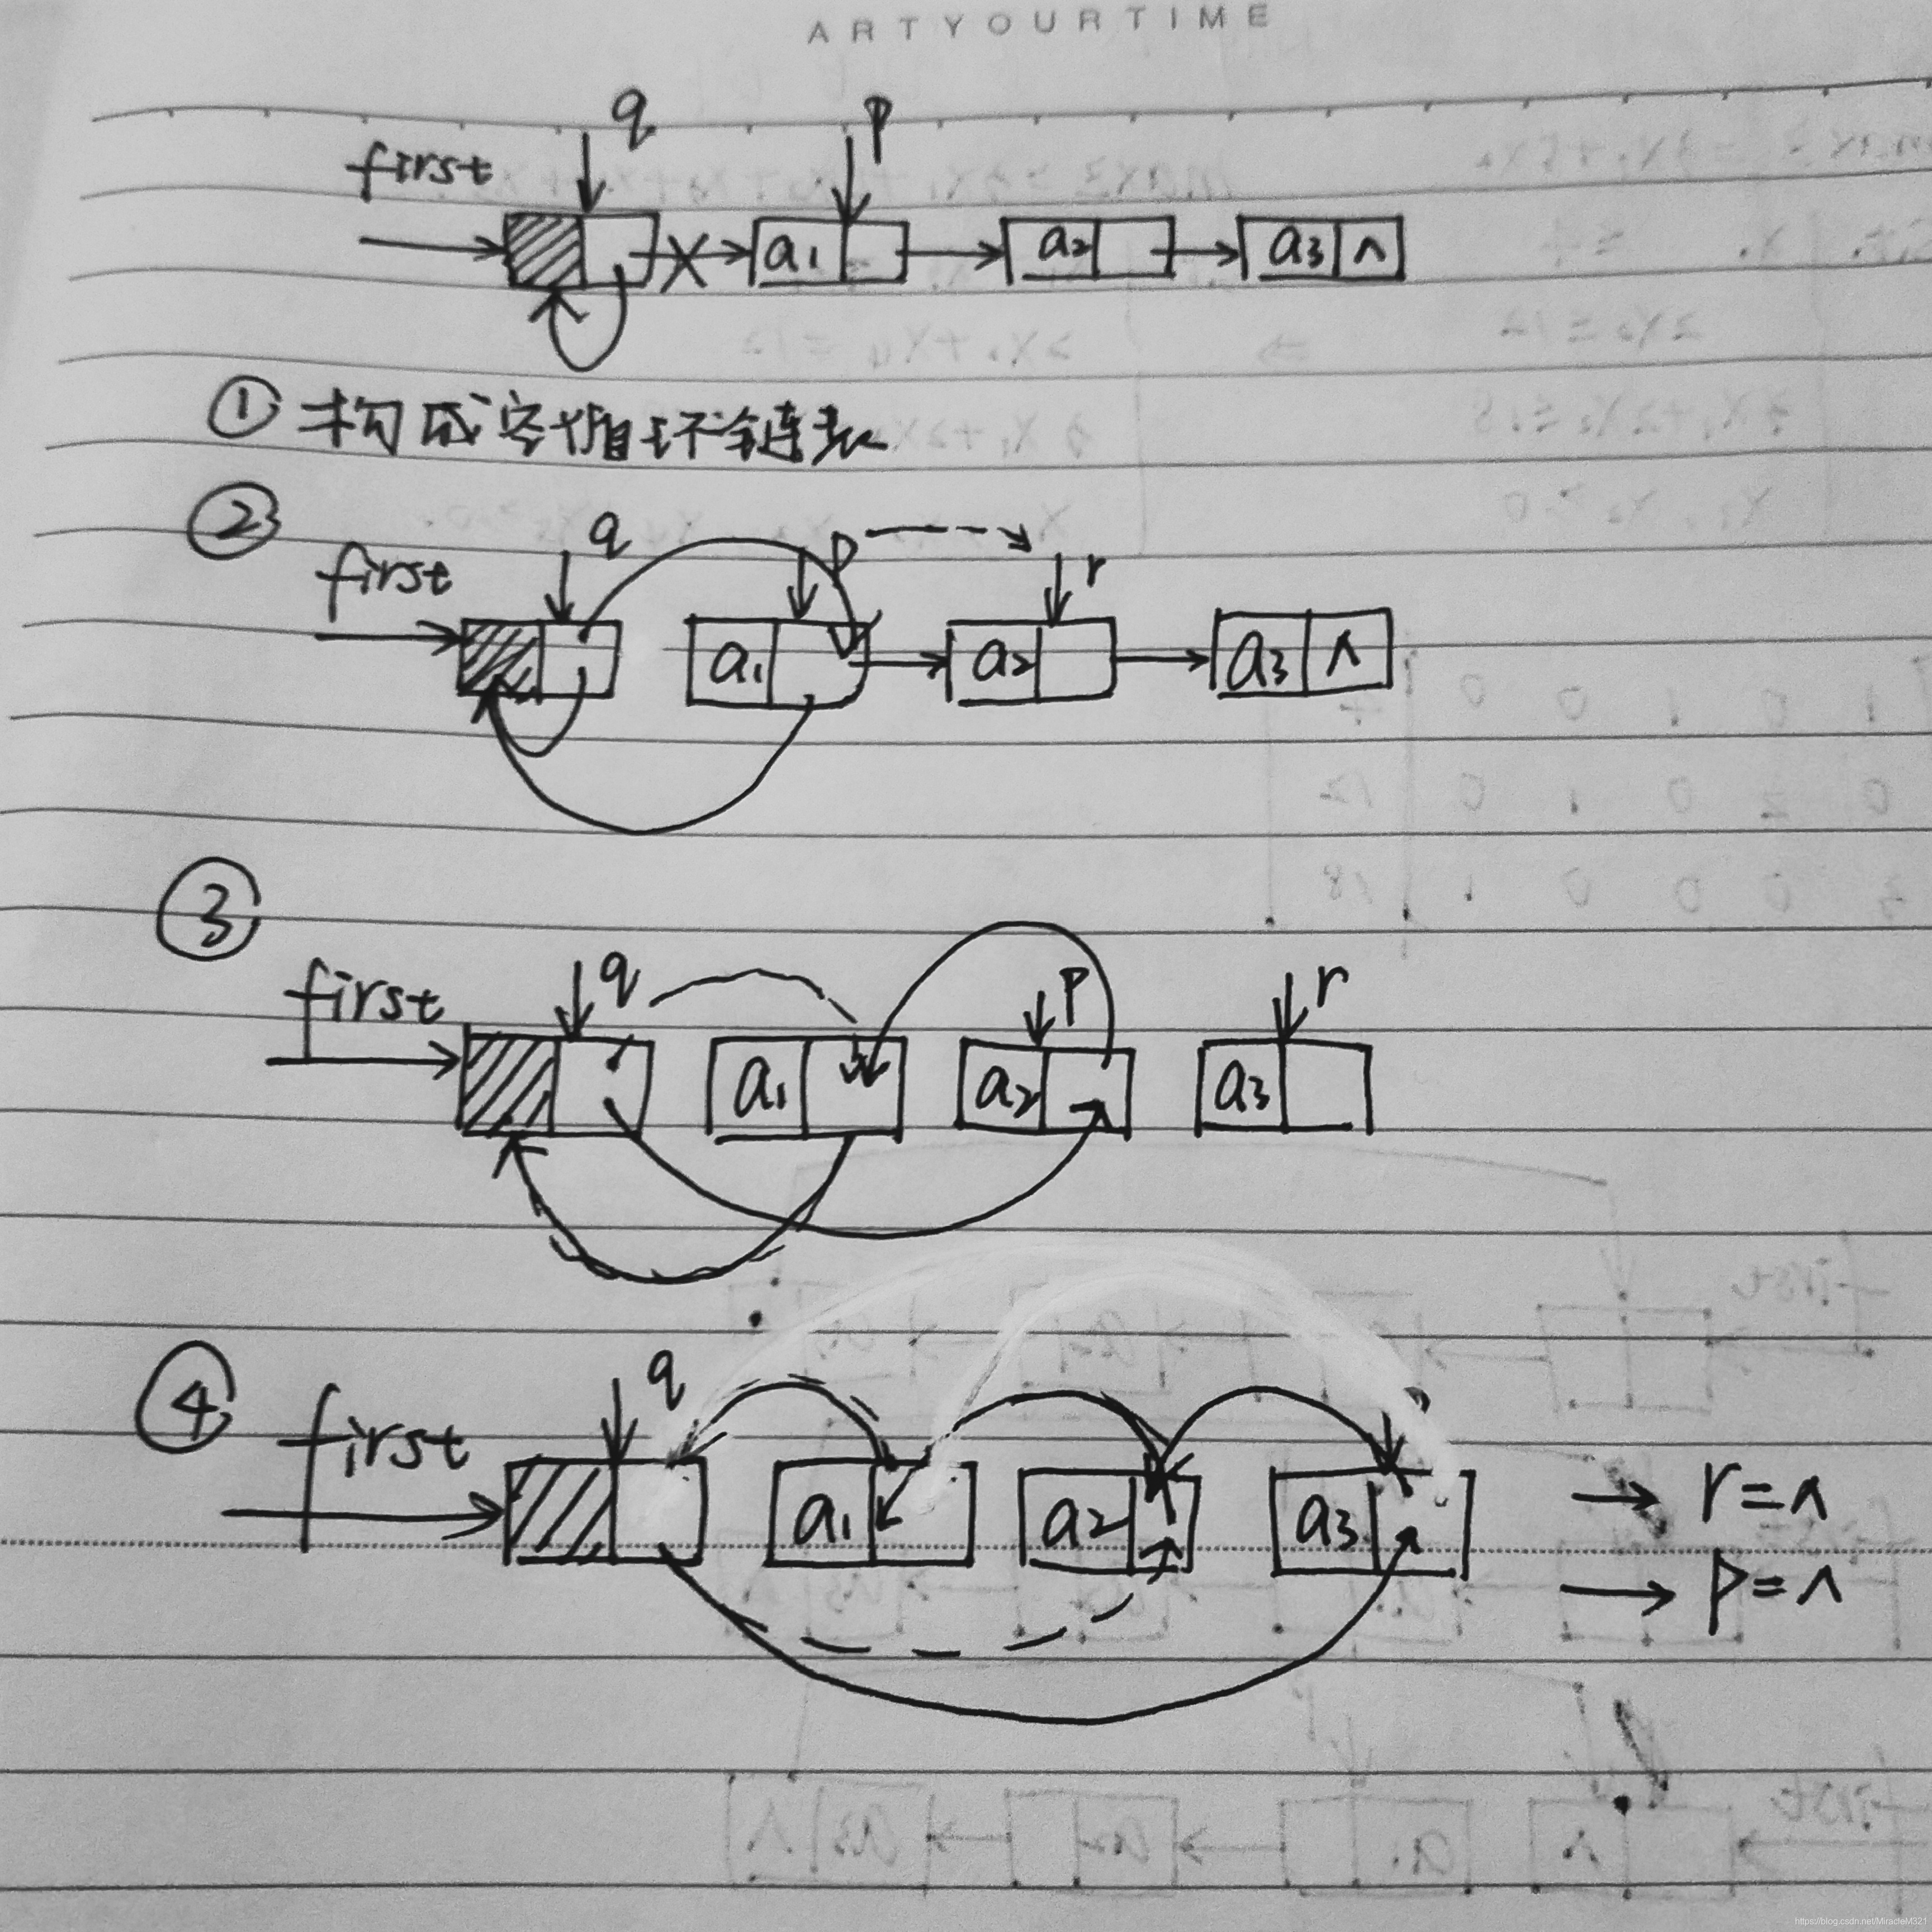 ARTYOURTIME
q p
first
a1 a2 a3 ∧
① 构成空循环链表
②
q p r
first
a1 a2 a3 ∧
③
q p r
first
a1 a2 a3
④
q
first
a1 a2 a3 → r=∧
→ p=∧
https://blog.csdn.net/MiracleM321